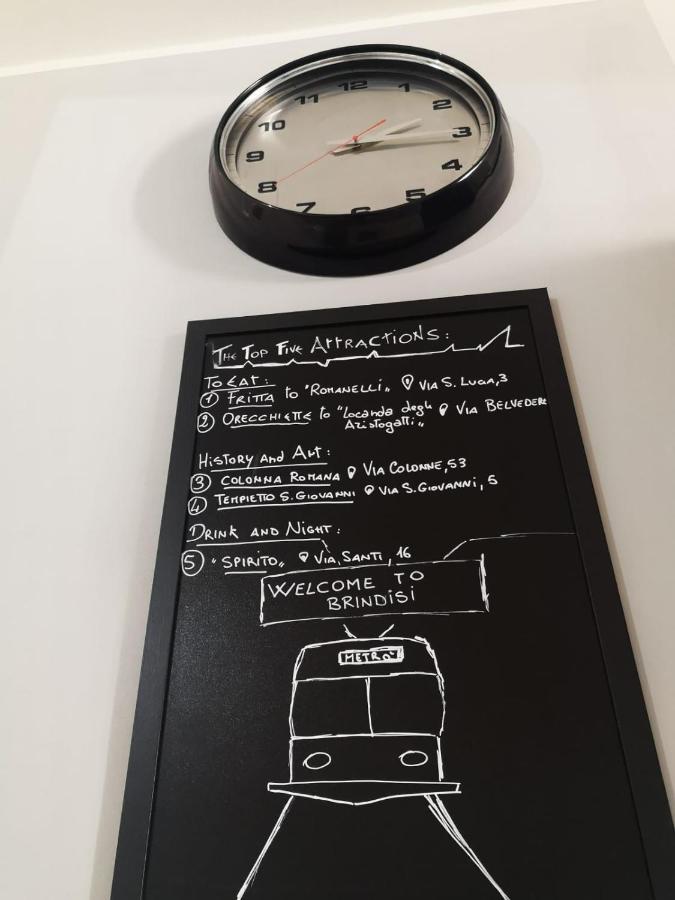 12
1
2
3
4
5
6
7
8
9
10
11
THE TOP FIVE ATTRACTIONS:
TO EAT:
1 FRITTA to "ROMANELLI" VIA S. LUCIA, 3
2 ORECCHIETTE to "Locanda degli VIA BELVEDERE
Aristogatti"
HISTORY AND ART:
3 COLONNA ROMANA VIA COLONNE, 53
4 TEMPIETTO S. GIOVANNI VIA S. GIOVANNI, 5
DRINK AND NIGHT:
5 "SPIRITO" VIA SANTI, 16
WELCOME TO
BRINDISI
METRO